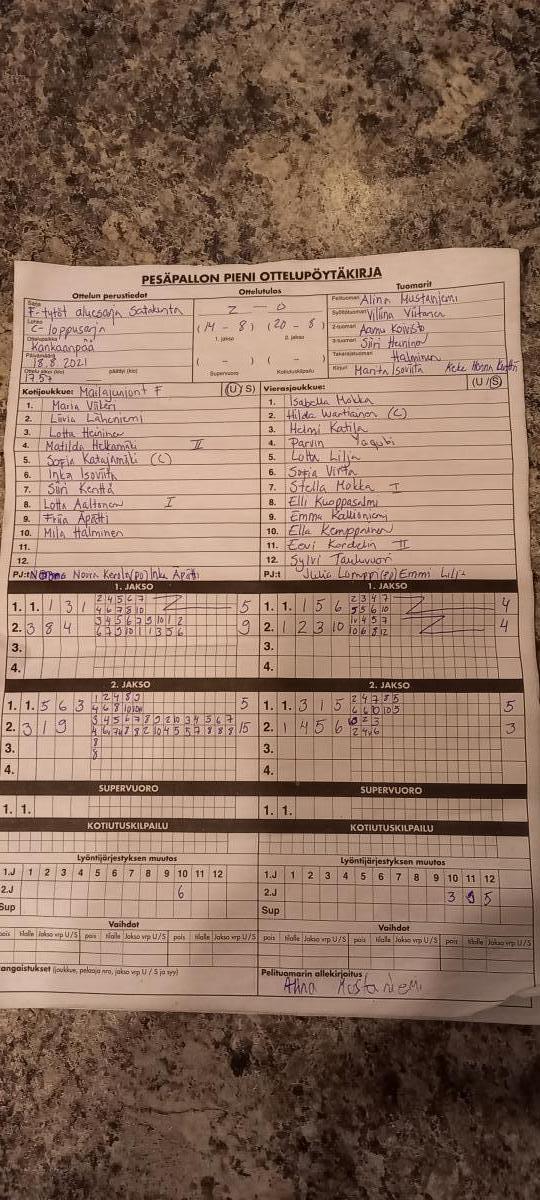 PESÄPALLON PIENI OTTELUPÖYTÄKIRJA
Ottelun perustiedot
Sarja
F-tytöt aluesarja Satakunta
Lohko
C-loppusarja
Ottelupaikka
Kankaanpää
Päivämäärä
18.8.2021
Ottelu alkoi (klo) päättyi (klo)
17.57
Ottelutulos
2 - 0
(14 - 8) (20 - 8)
1. jakso 2. jakso
( - ) ( - )
Supervuoro Kotiutuskilpailu
Tuomarit
Pelituomari Alina Mustaniemi
Syöttötuomari Viliina Viitanen
2-tuomari Aamu Koivisto
3-tuomari Siiri Heinino
Takarajatuomari Halminen
Kirjuri Marita Isoviita
Kotijoukkue: Mailajuniorit F (U/S)
1. Maria Viikeri
2. Liivia Lähteniemi
3. Lotta Heininen
4. Matilda Helkamäki II
5. Sofia Katajamäki (C)
6. Inka Isoviita
7. Siiri Kerttä
8. Lotta Aaltonen I
9. Friia Äpätti
10. Mila Halminen
11.
12.
PJ:t Noora Kerola(po) Inka Äpätti
Vierasjoukkue: (U/S)
1. Isabella Mokka
2. Hilda Wartiainen (C)
3. Helmi Katila
4. Parvin Yaqubi
5. Lotta Lilja
6. Sofia Virta
7. Stella Mokka I
8. Elli Kuoppasalmi
9. Emma Kallioniemi
10. Ella Kemppainen
11. Eevi Kordelin II
12. Sylvi Taukuvuori
PJ:t Julia Lamppi(pj) Emmi Lilja
1. JAKSO
1. 1. 1 3 1 2 4 5 6 7 5
4 6 7 8 10
2. 3 8 4 3 4 5 6 7 9 10 1 2 9
6 7 9 10 1 1 3 5 6
3.
4.
1. JAKSO
1. 1. 1 5 6 2 3 4 7 4
5 5 6 10
2. 1 2 3 10 4
3.
4.
2. JAKSO
1. 1. 5 6 3 5
2. 3 1 9 15
3.
4.
2. JAKSO
1. 1. 3 1 5 2 4 7 8 5 5
2. 1 4 5 6 3
3.
4.
SUPERVUORO
1. 1.
SUPERVUORO
1. 1.
KOTIUTUSKILPAILU
KOTIUTUSKILPAILU
Lyöntijärjestyksen muutos
1.J 1 2 3 4 5 6 7 8 9 10 11 12
2.J 6
Sup
Lyöntijärjestyksen muutos
1.J 1 2 3 4 5 6 7 8 9 10 11 12
2.J 3 9 5
Sup
Vaihdot
pois tilalle Jakso vrp U/S pois tilalle Jakso vrp U/S pois tilalle Jakso vrp U/S
Vaihdot
pois tilalle Jakso vrp U/S pois tilalle Jakso vrp U/S pois tilalle Jakso vrp U/S
angaistukset (joukkue, pelaaja nro, jakso vrp U / S ja syy)
Pelituomarin allekirjoitus
Alina Mustaniemi